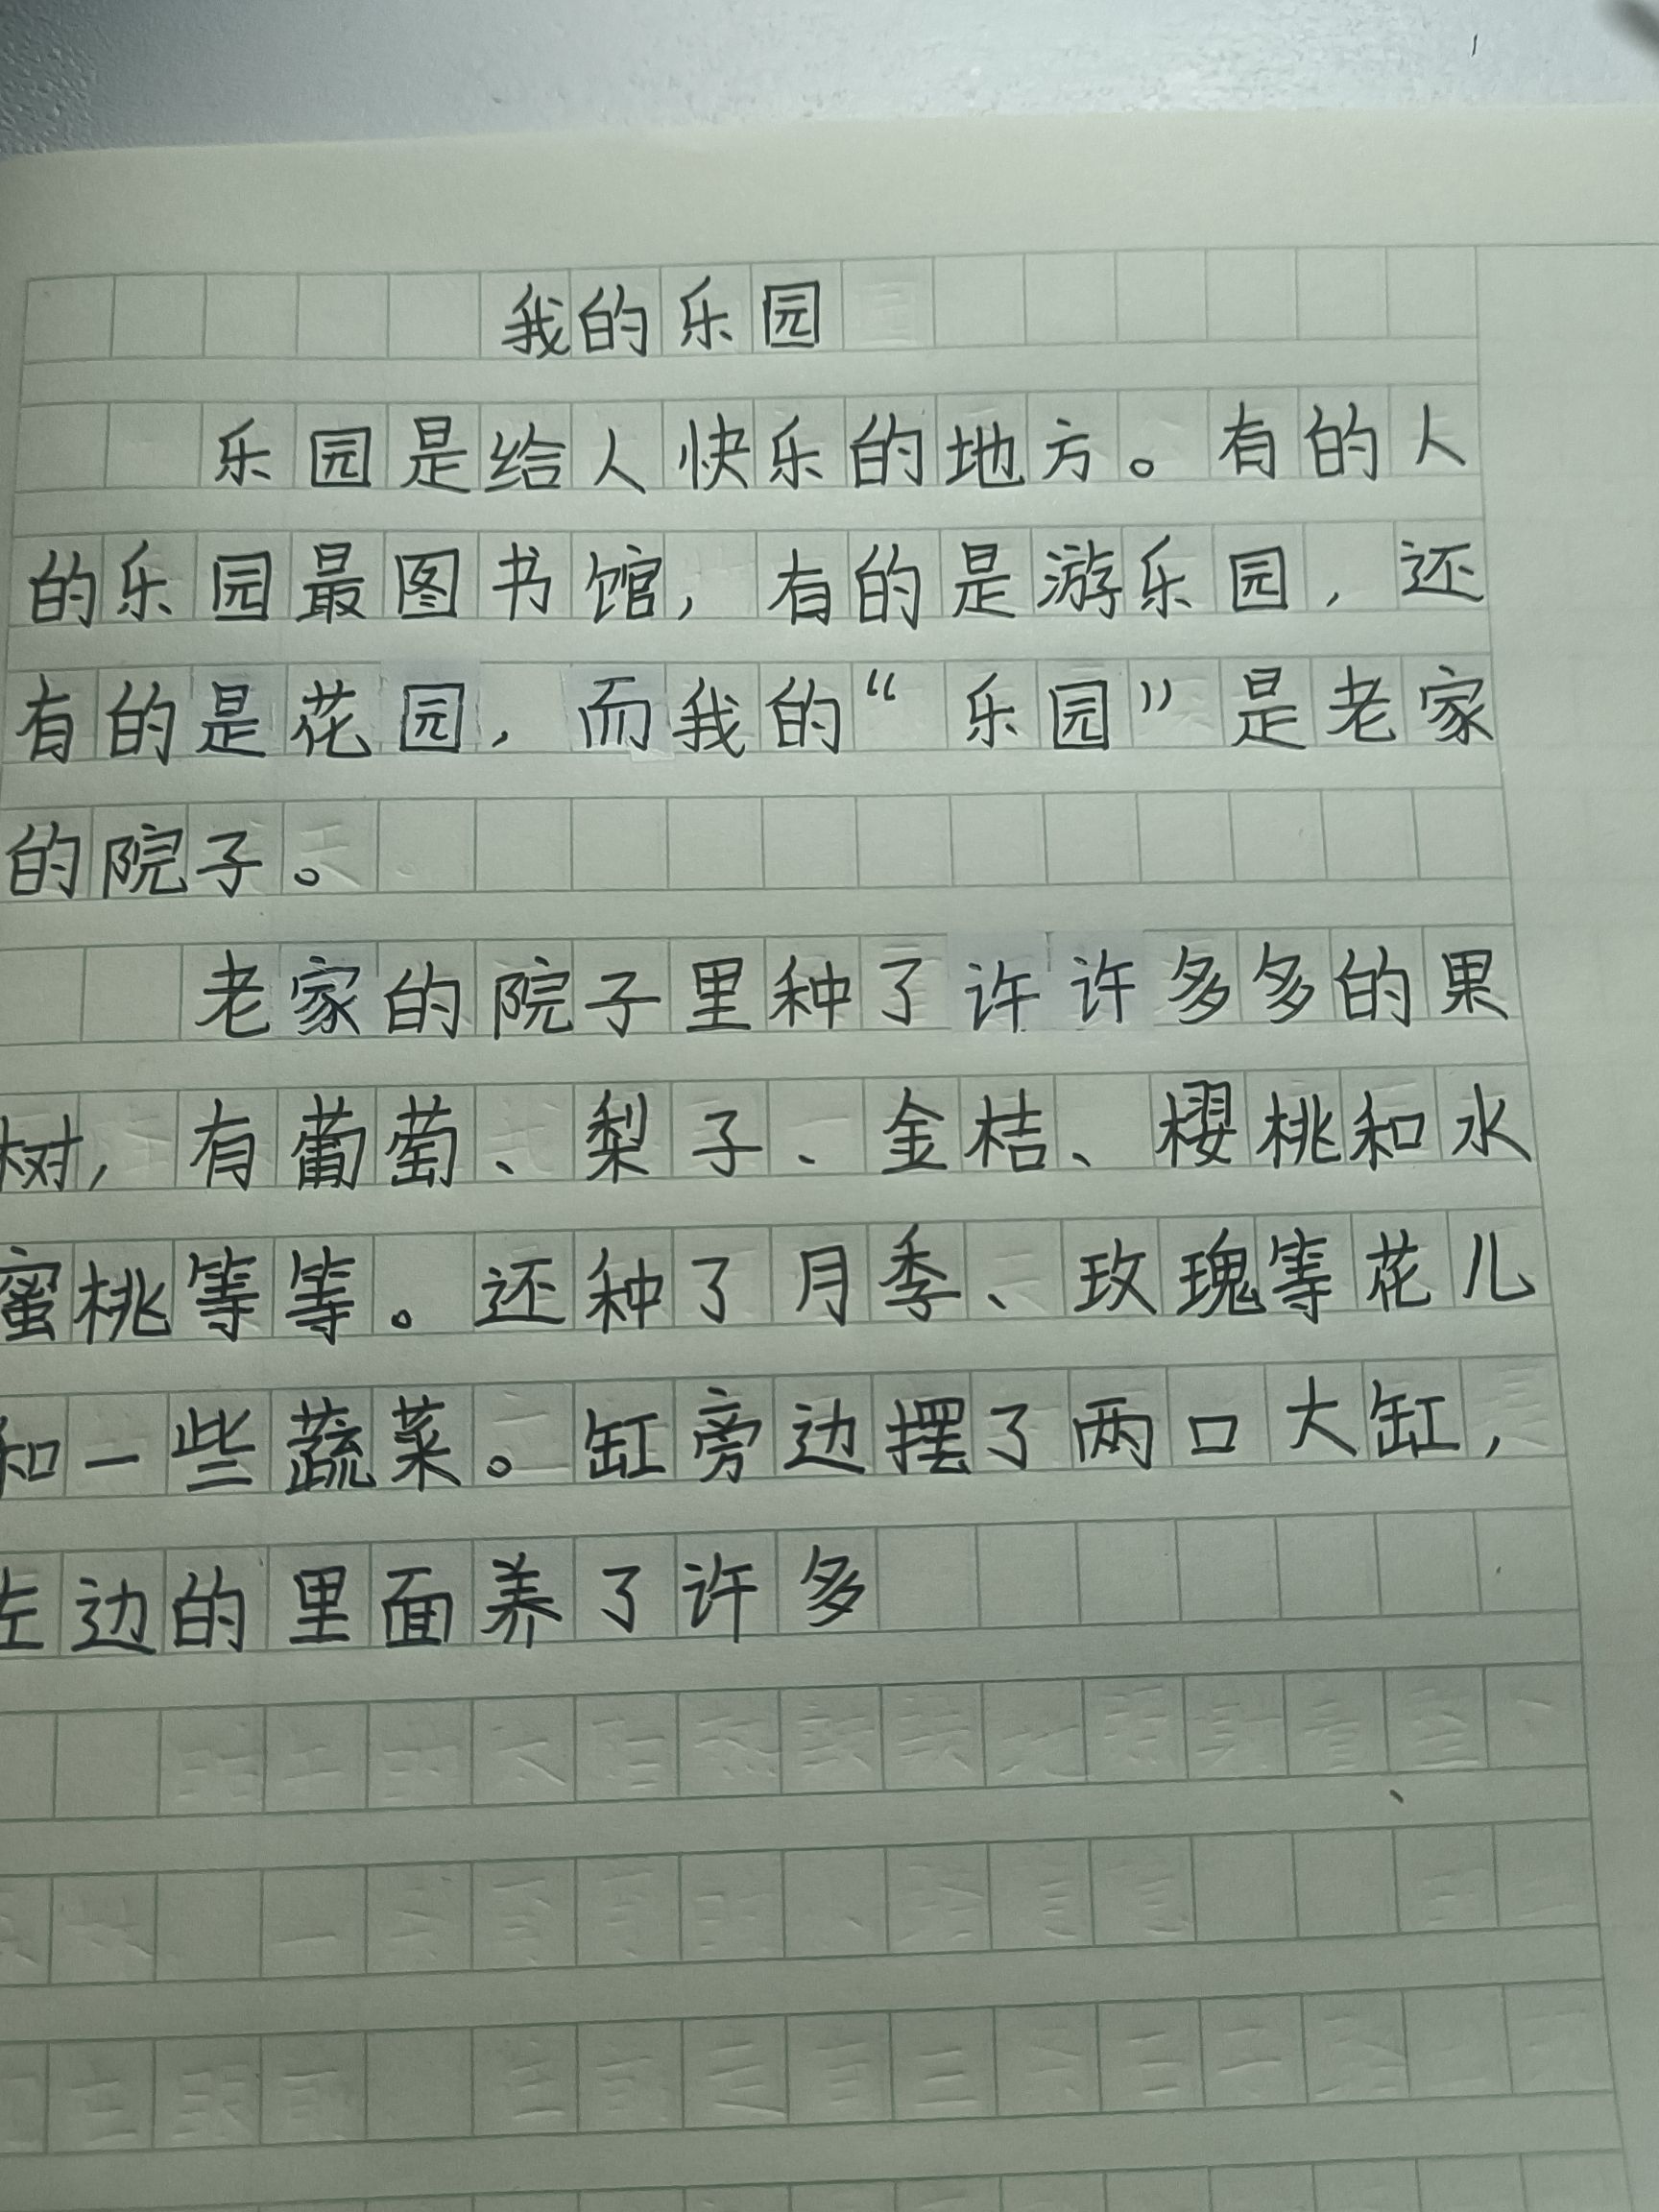 我的乐园
乐园是给人快乐的地方。有的人
的乐园最图书馆，有的是游乐园，还
有的是花园，而我的“乐园”是老家
的院子。
老家的院子里种了许许多多的果
树，有葡萄、梨子、金桔、樱桃和水
蜜桃等等。还种了月季、玫瑰等花儿
和一些蔬菜。缸旁边摆了两口大缸，
左边的里面养了许多